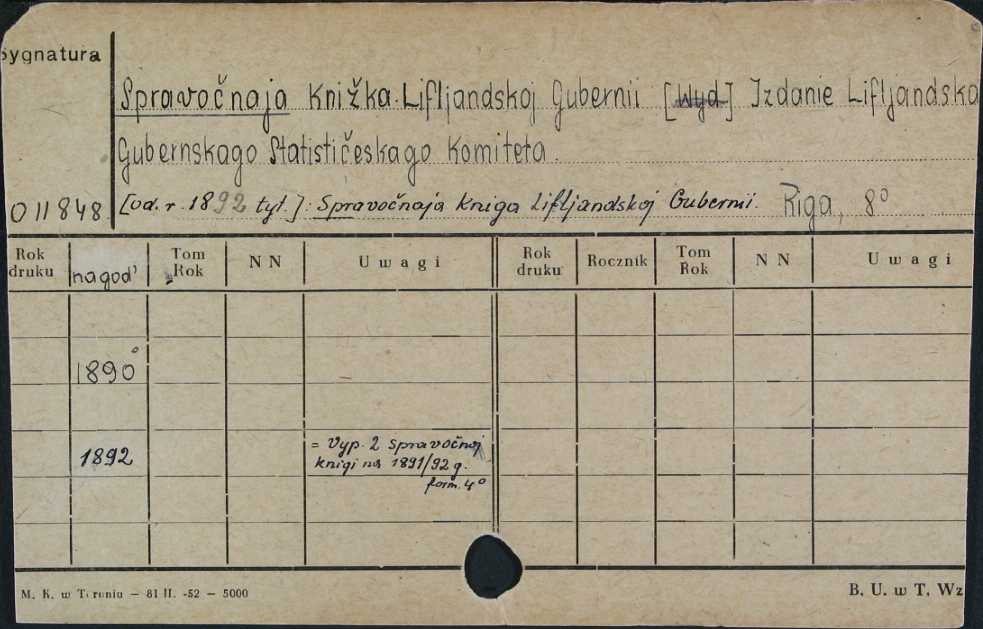 Sygnatura
Spravočnaja Knižka Lifljandskoj Gubernii [Wyd] Izdanie Lifljandska
Gubernskago Statističeskago Komiteta.
011848 [od r. 1892 tyt.]: Spravočnaja Kniga Lifljandskoj Gubernii. Riga, 8°
Rok druku na god' Tom Rok NN Uwagi Rok druku Rocznik Tom Rok NN Uwagi
1890°
1892 = Vyp. 2 Spravočnoj
knigi na 1891/92 g.
form. 4°
M. K. w Toruniu – 81 II. -52 – 5000 B. U. w T. Wz